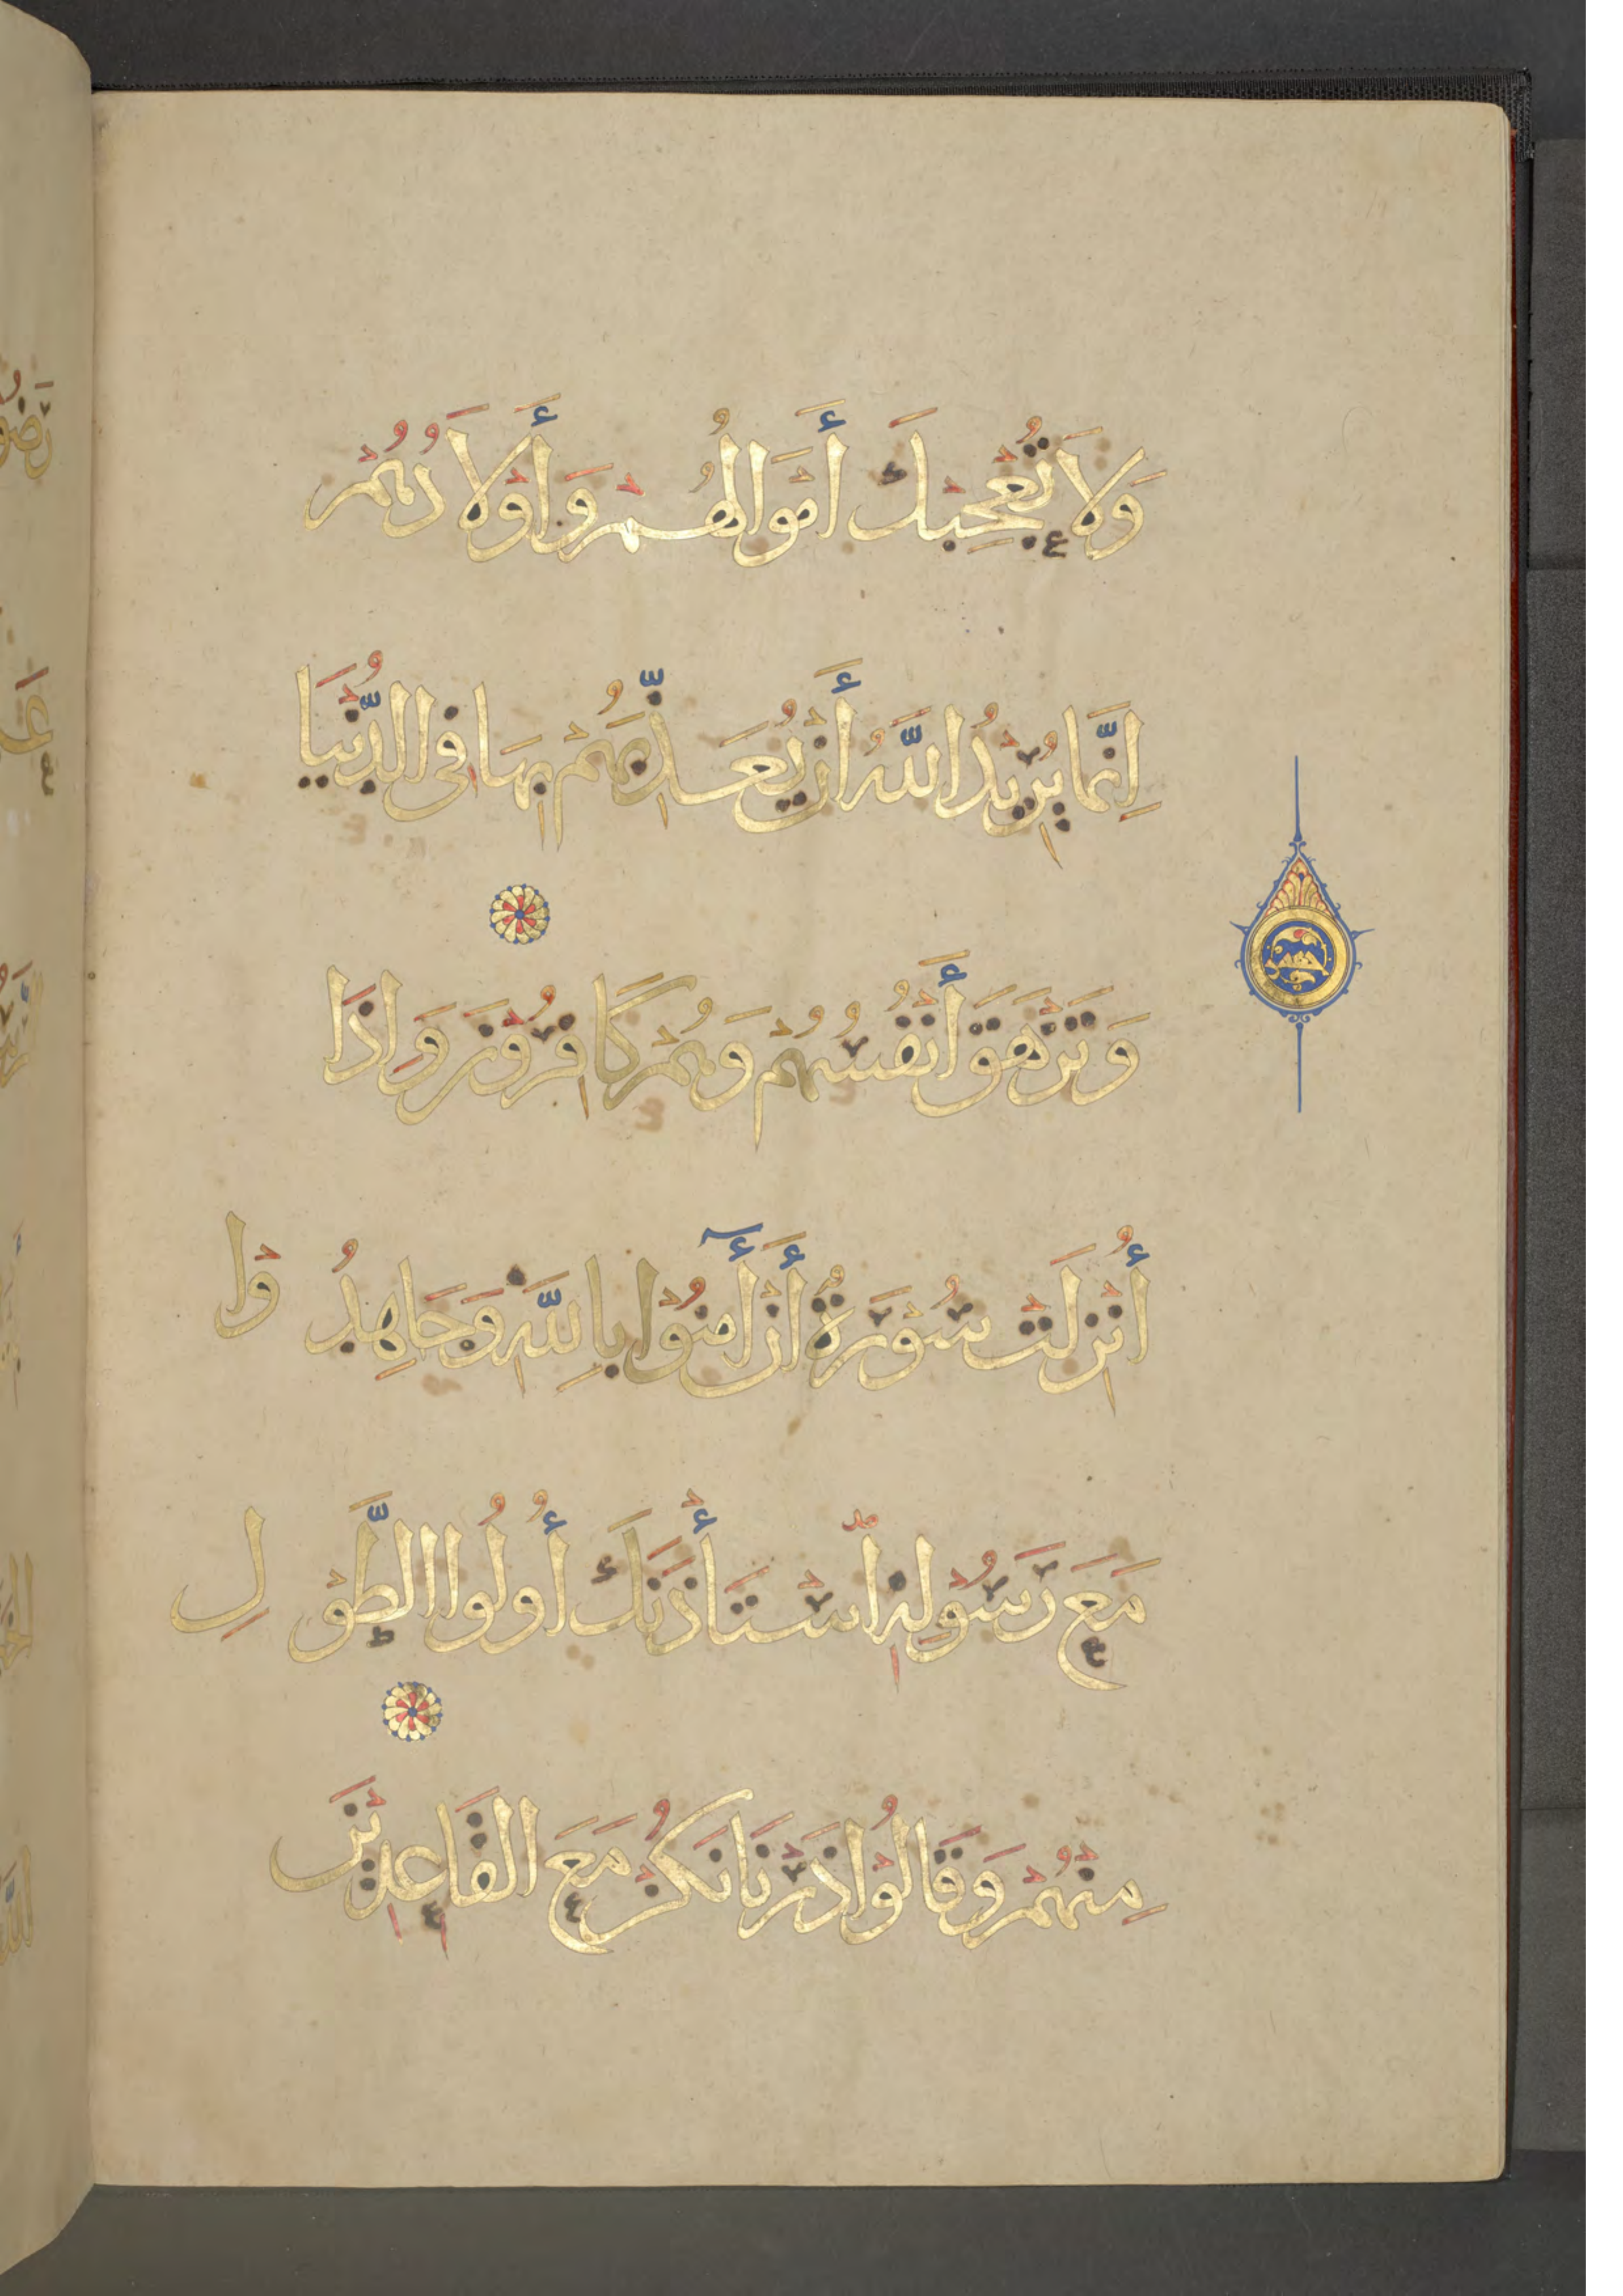 وَلَا تُعْجِبْكَ أَمْوَالُهُمْ وَأَوْلَادُهُمْ
إِنَّمَا يُرِيدُ اللَّهُ أَنْ يُعَذِّبَهُمْ بِهَا فِي الدُّنْيَا
وَتَزْهَقَ أَنْفُسُهُمْ وَهُمْ كَافِرُوْنَ وَإِذَا
أُنْزِلَتْ سُوْرَةٌ أَنْ أٰمِنُوْا بِاللَّهِ وَجَاهِدُوْا
مَعَ رَسُوْلِهِ اسْتَأْذَنَكَ أُولُوا الطَّوْلِ
مِنْهُمْ وَقَالُوْا ذَرْنَا نَكُنْ مَعَ الْقَاعِدِيْنَ